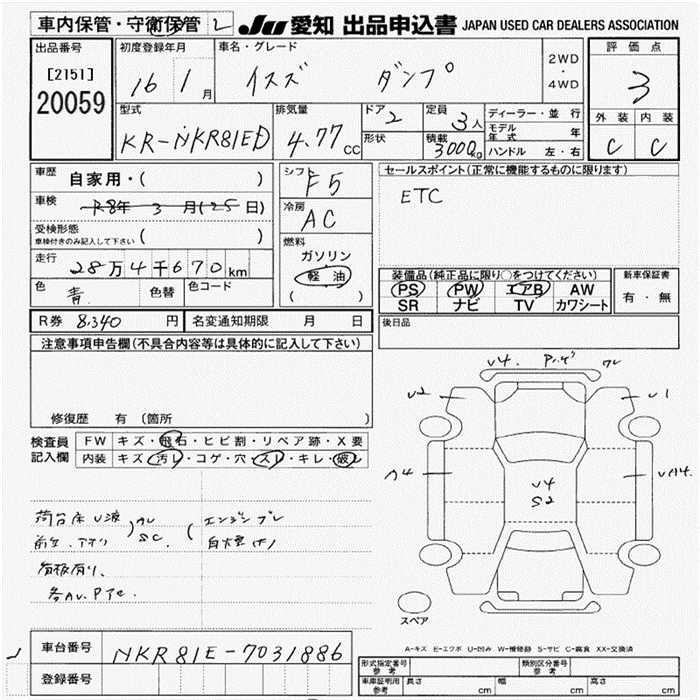 車内保管・守衛保管 2
JU 愛知 出品申込書 JAPAN USED CAR DEALERS ASSOCIATION
出品番号
[2151]
20059
初度登録年月
16 1月
車名・グレード
イスズ ダンプ
2WD
・
4WD
評価点
3
外装 内装
C C
型式
KR-NKR81ED
排気量
4.77cc
ドア 2
形状
定員 3人
積載 3000kg
ディーラー・並行
モデル年式 年
ハンドル 左・右
車歴 自家用・( )
車検 R8年 3月(25日)
受検形態
車検付きのみ記入して下さい ( )
走行 28万4千670km
色 青 色替 色コード
シフト F5
冷房 AC
燃料
ガソリン
軽油
( )
セールスポイント(正常に機能するものに限ります)
ETC
装備品(純正品に限り○をつけてください)
PS PW エアB AW
SR ナビ TV カワシート
新車保証書
有・無
R券 8,340円
名変通知期限 月 日
後日品
注意事項申告欄(不具合内容等は具体的に記入して下さい)
修復歴 有 (箇所 )
検査員記入欄
FW キズ・飛石・ヒビ割・リペア跡・X要
内装 キズ・汚レ・コゲ・穴・スレ・キレ・破レ
荷台床U凹
SC.
エンジン
U4.
U2
U1
U4
S2
スペア
A-キズ E-エクボ U-凹み W-補修跡 S-サビ C-腐食 XX-交換済
車台番号 NKR81E-7031886
登録番号
形式指定番号
参考
類別区分番号
参考
車庫証明用
参考
長さ cm 幅 cm 高さ cm